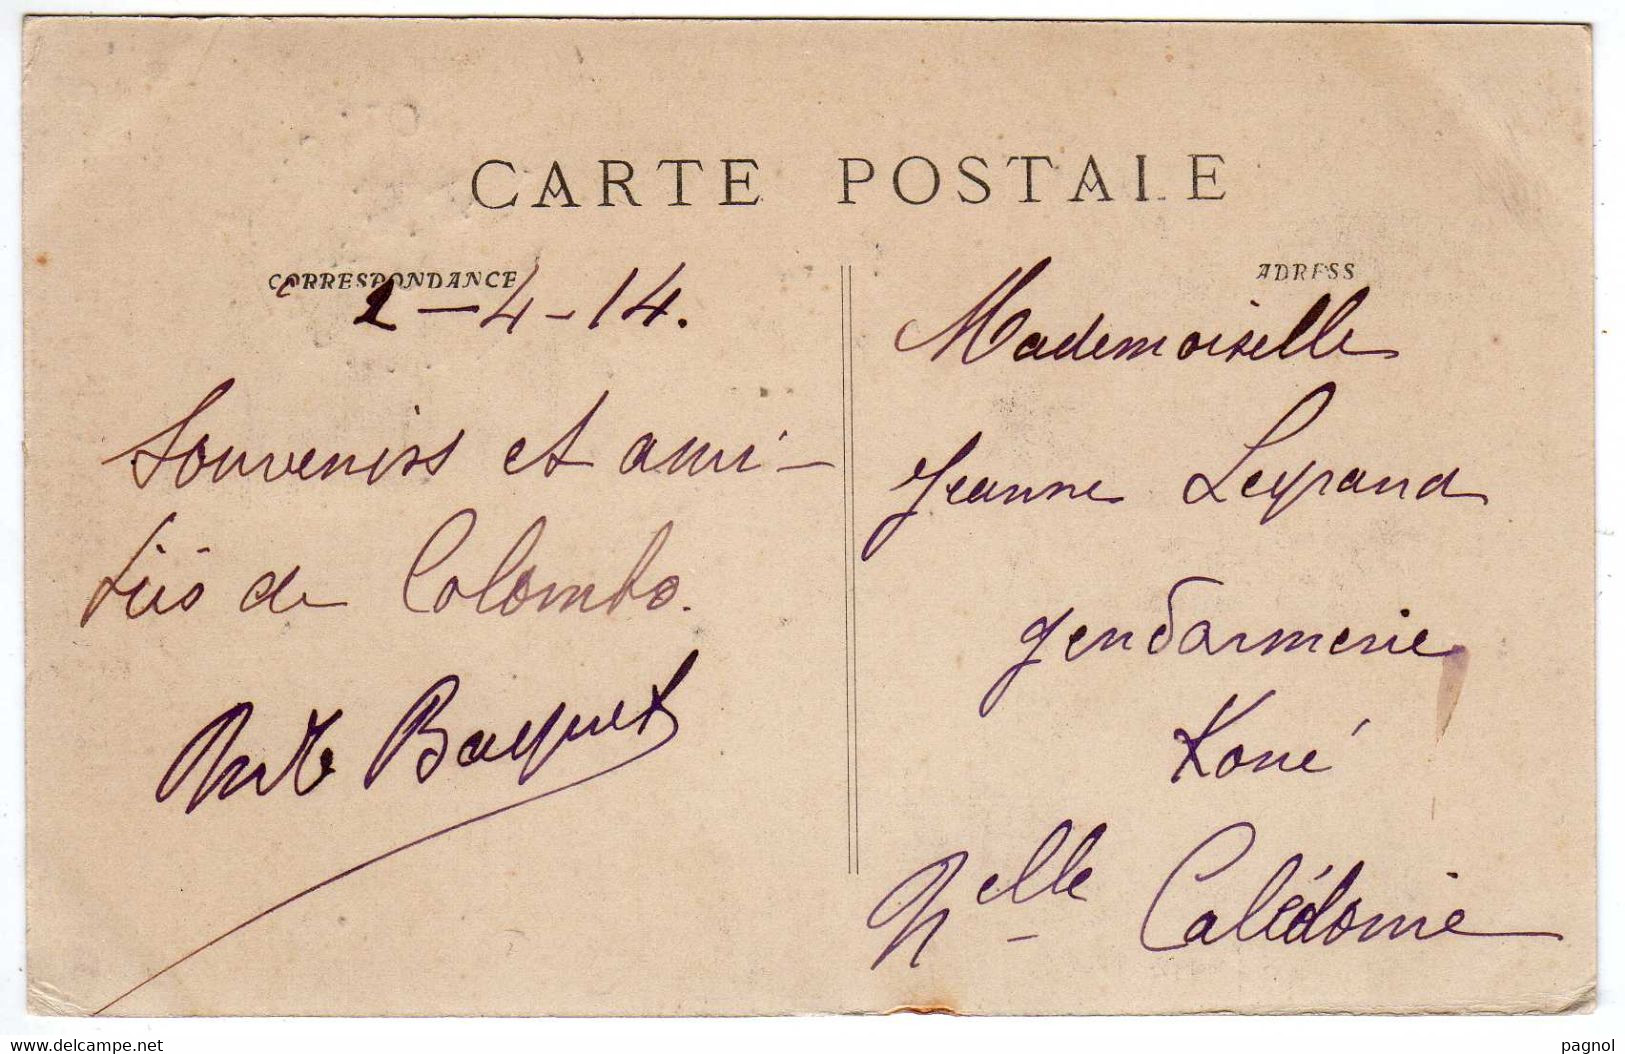 CARTE POSTALE
CORRESPONDANCE
2-4-14.
Souvenirs et ami-
tiés de Colombo.
Baquet
ADRESS
Mademoiselle
Jeanne Legrand
gendarmerie
Koné
Nelle Calédonie
www.delcampe.net
pagnol